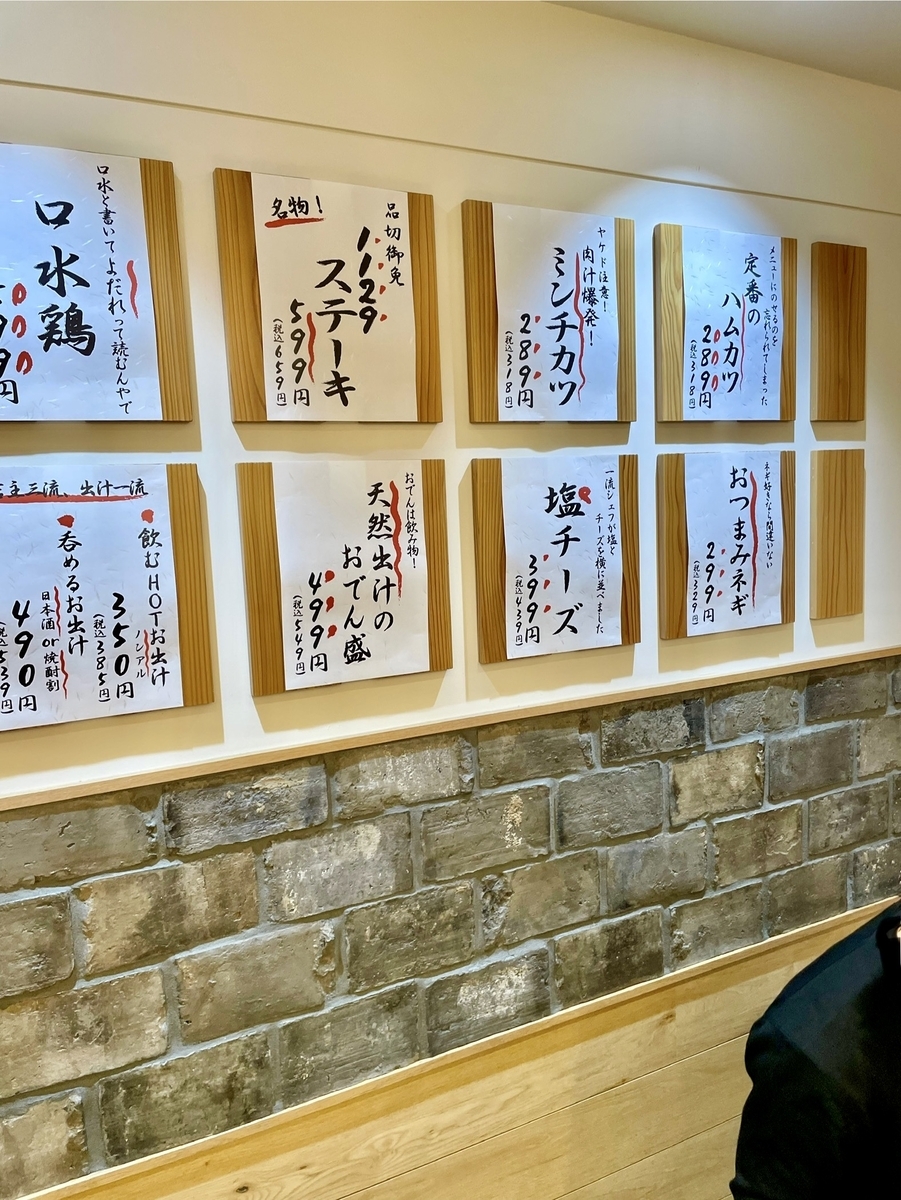 口水と書いてよだれって読むんやで
口水鶏
99円
名物！
品切御免
1129
ステーキ
599円
(税込659円)
ヤケド注意！
肉汁爆発！
ミンチカツ
289円
(税込318円)
メニューにのせるのを
忘れられてしまった
定番の
ハムカツ
289円
(税込318円)
主三流、出汁一流
飲むHOTお出汁
ノンアル
350円
(税込385円)
呑めるお出汁
日本酒or焼酎割
490円
(税込539円)
おでんは飲み物！
天然出汁の
おでん盛
499円
(税込549円)
一流シェフが塩と
チーズを横に並べました
塩チーズ
399円
(税込439円)
ネギ好きなら間違いない
おつまみネギ
299円
(税込329円)